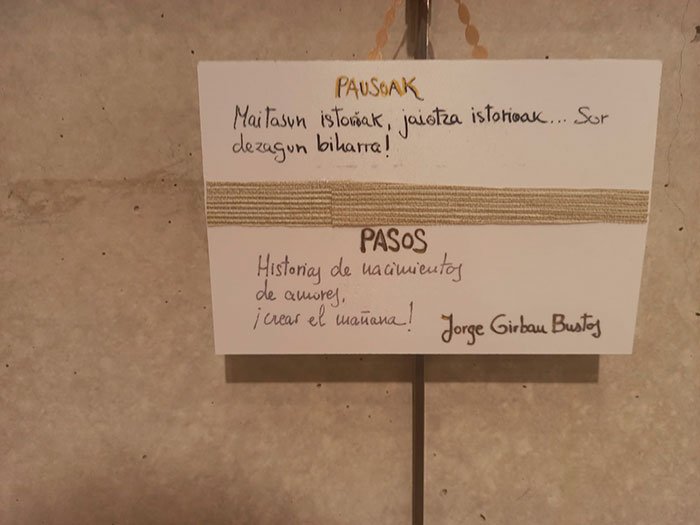 PAUSOAK
Maitasun istorioak, jaiotza istorioak... Sor
dezagun biharra!
PASOS
Historias de nacimientos
de amores,
¡crear el mañana!
Jorge Girbau Bustos